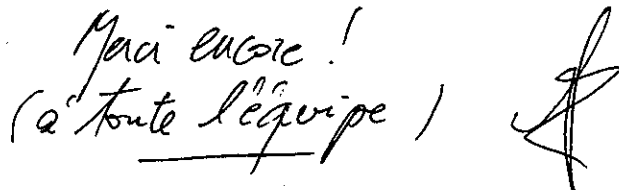 Merci encore !
(à toute l'équipe)